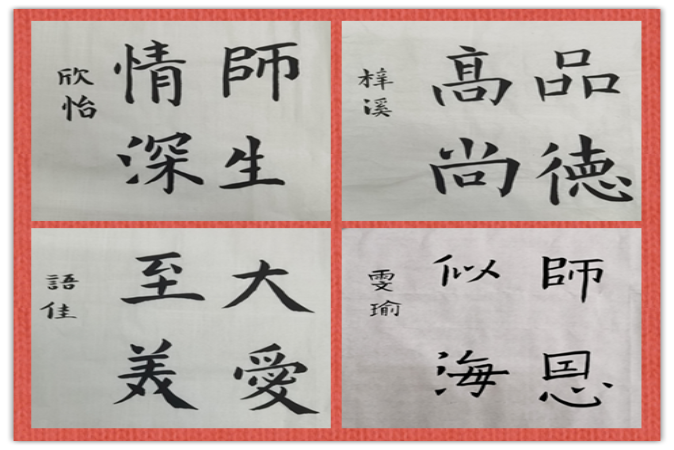 師生
情深
欣怡
品德
高尚
梓溪
大愛
至美
語佳
師恩
似海
雯瑜